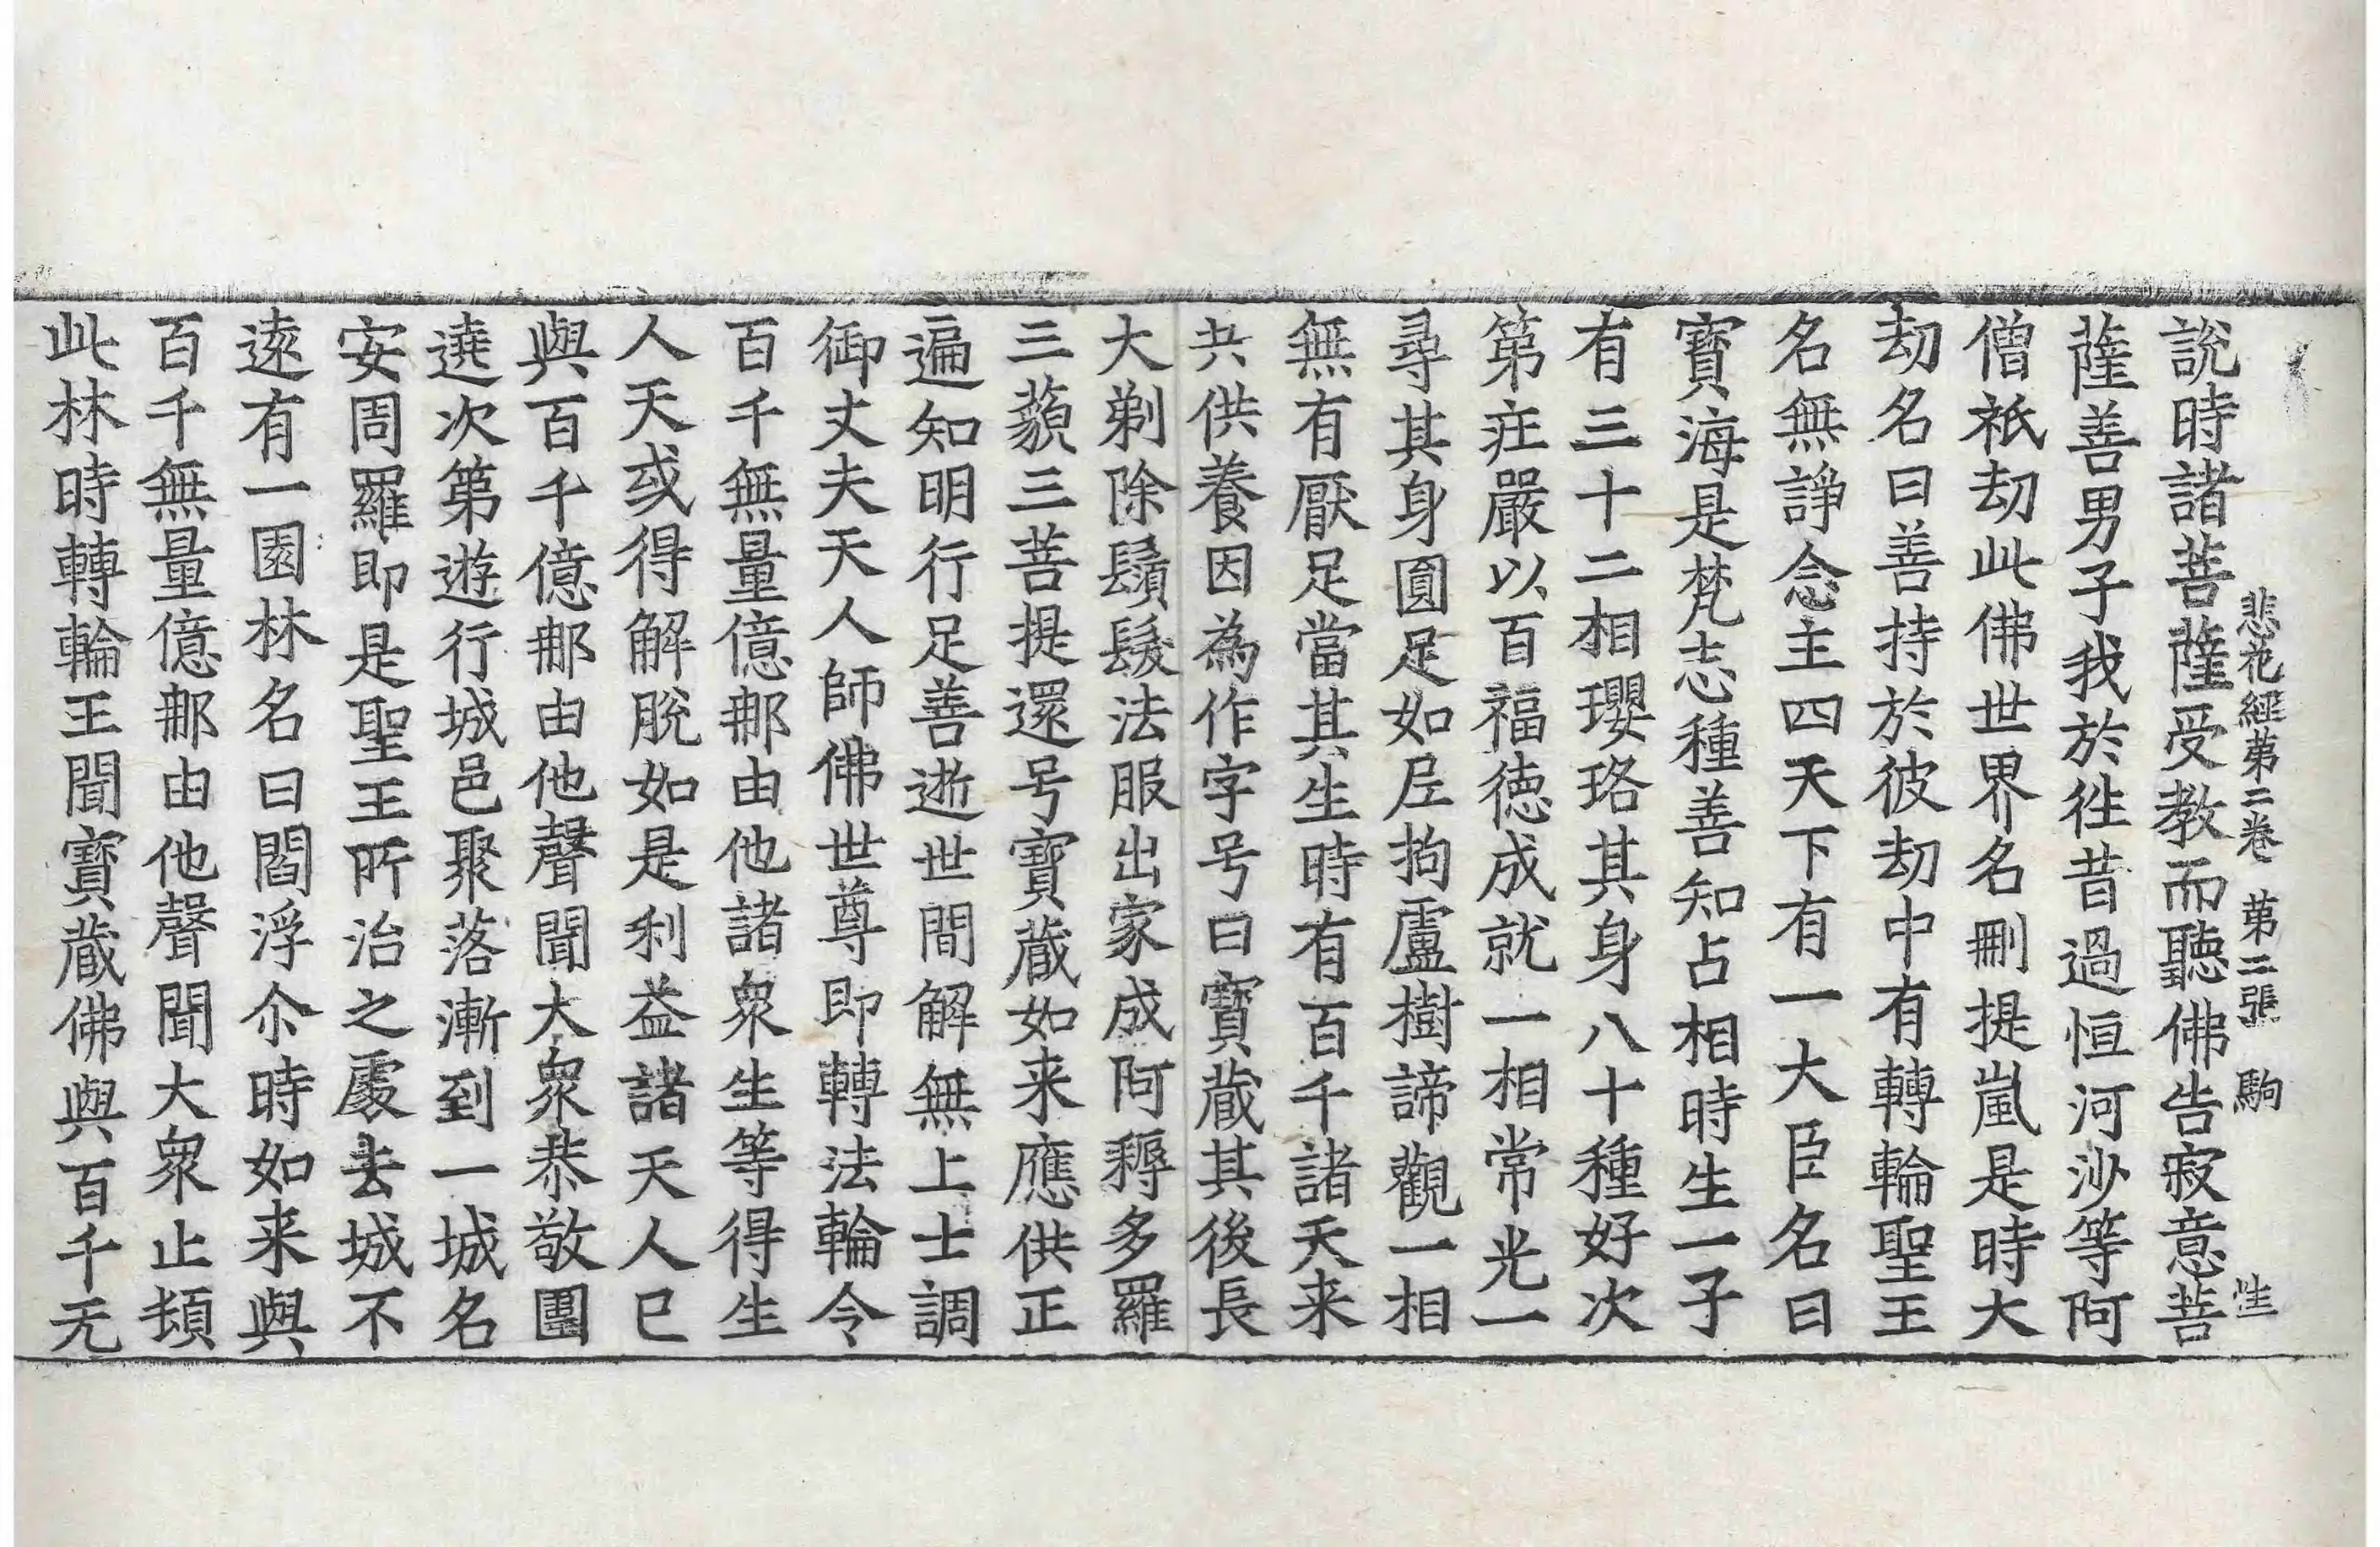 悲花經第二卷　第二張　駒　性
說時諸菩薩受教而聽佛告寂意菩
薩善男子我於往昔過恒河沙等阿
僧祇劫此佛世界名刪提嵐是時大
劫名曰善持於彼劫中有轉輪聖王
名無諍念主四天下有一大臣名曰
寶海是梵志種善知占相時生一子
有三十二相瓔珞其身八十種好次
第疘嚴以百福德成就一相常光一
尋其身圓足如尼拘盧樹諦觀一相
無有厭足當其生時有百千諸天来
共供養因為作字号曰寶蔵其後長
大剃除鬚髮法服出家成阿耨多羅
三藐三菩提還号寶蔵如来應供正
遍知明行足善逝世間解無上士調
御丈夫天人師佛世尊即轉法輪令
百千無量億那由他諸眾生等得生
人天或得解脫如是利益諸天人已
與百千億那由他聲聞大眾恭敬圍
遶次第遊行城邑聚落漸到一城名
安周羅即是聖王所治之處去城不
遠有一園林名曰閻浮尒時如来與
百千無量億那由他聲聞大眾止頓
此林時轉輪王聞寶蔵佛與百千无